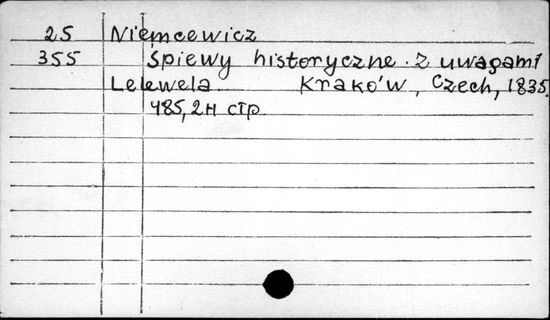 25 Niemcewicz
355 Śpiewy historyczne. Z uwagami
Lelewela Kraków, Czech, 1835.
485, 2н стр.